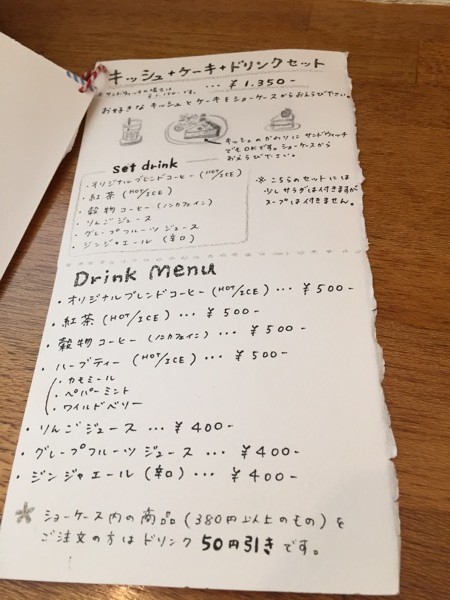 キッシュ+ケーキ+ドリンクセット
… ¥1.350-
お好きなキッシュとケーキをショーケースからおえらび下さい。
キッシュのかわりにサンドウィッチ
でもOKです。ショーケースから
おえらび下さい。
set drink
・オリジナルブレンドコーヒー(HOT/ICE)
・紅茶(HOT/ICE)
・穀物コーヒー(ノンカフェイン)
・りんごジュース
・グレープフルーツジュース
・ジンジャエール(辛口)
※こちらのセットには
サラダは付きますが
スープは付きません。
Drink Menu
・オリジナルブレンドコーヒー(HOT/ICE)… ¥500-
・紅茶(HOT/ICE)… ¥500-
・穀物コーヒー(ノンカフェイン)… ¥500-
・ハーブティー(HOT/ICE)… ¥500-
・カモミール
・ペパーミント
・ワイルドベリー
・りんごジュース … ¥400-
・グレープフルーツジュース … ¥400-
・ジンジャエール(辛口)… ¥400-
※ショーケース内の商品(380円以上のもの)を
ご注文の方はドリンク50円引きです。